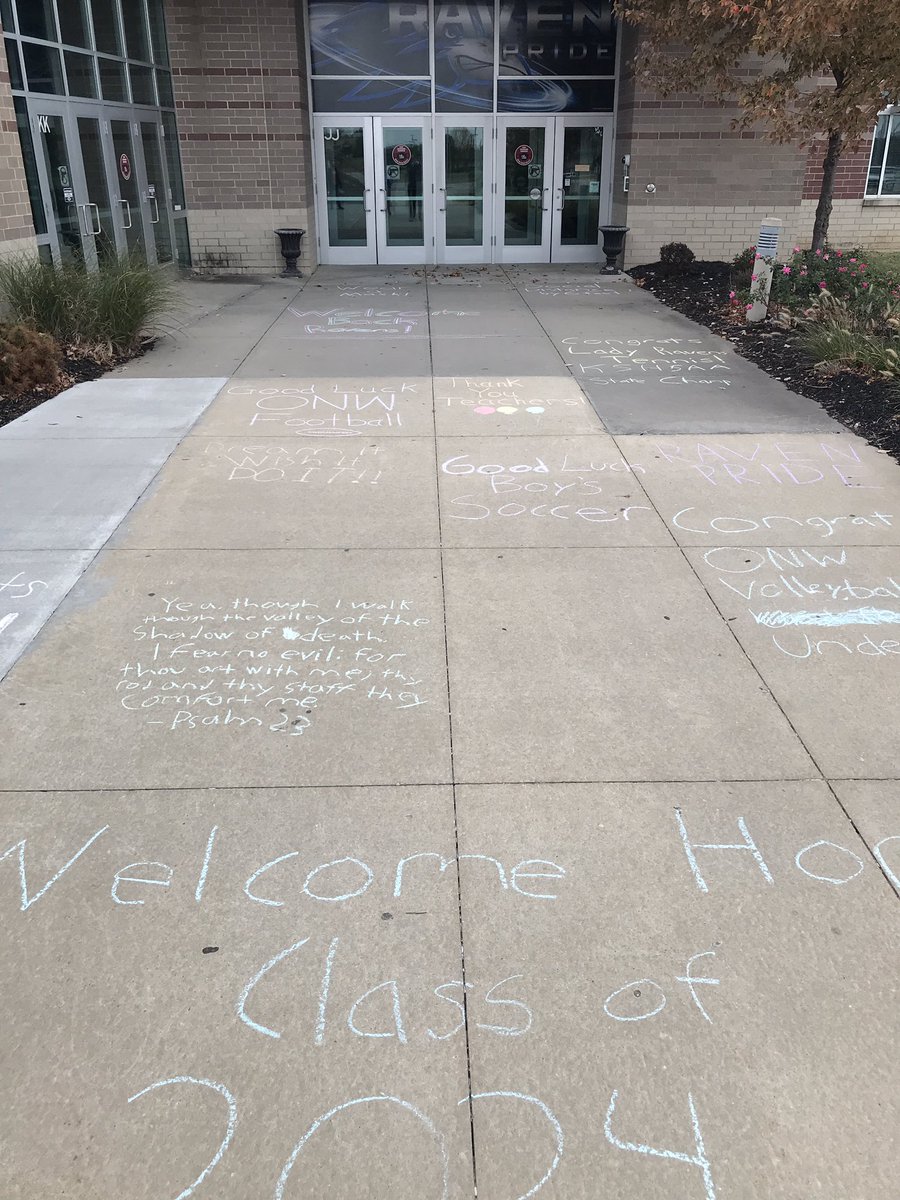 RAVEN
PRIDE
KK
JJ
Welcome
Back
Ravens!
Congrats
Lady Raven
Tennis!
KSHSAA
State Champ
Good Luck
ONW
Football
Thank
You
Teachers!
Dream It
Wish It
DO IT!!
Good Luck
Boy's
Soccer
RAVEN
PRIDE
Congrat
ONW
Volleyball
Unde
Yea, though I walk
though the valley of the
Shadow of death.
I fear no evil: for
thou art with me; thy
rod and thy staff they
comfort me
- Psalm 23
Welcome Hom
Class of
2024